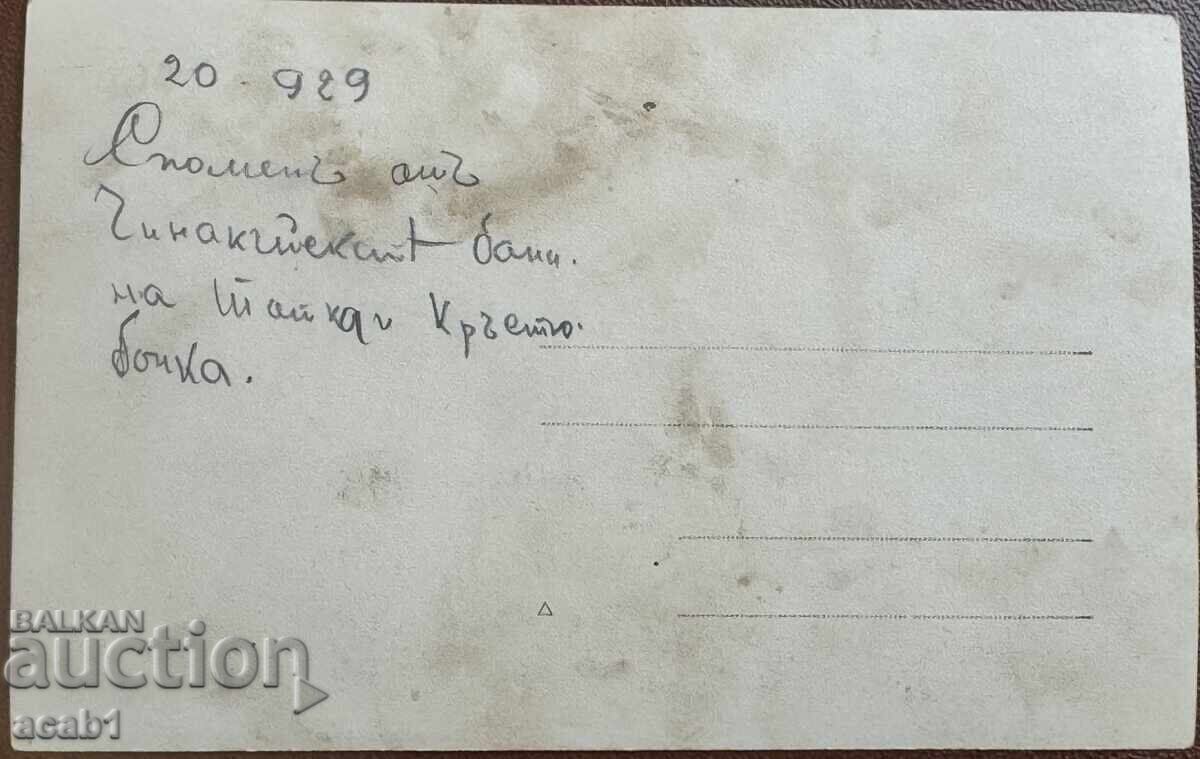 20 - 929
Споменъ отъ
Чинакчийскитѣ бани.
на Тотка и Кръстю.
бочка.
BALKAN
auction
acab1